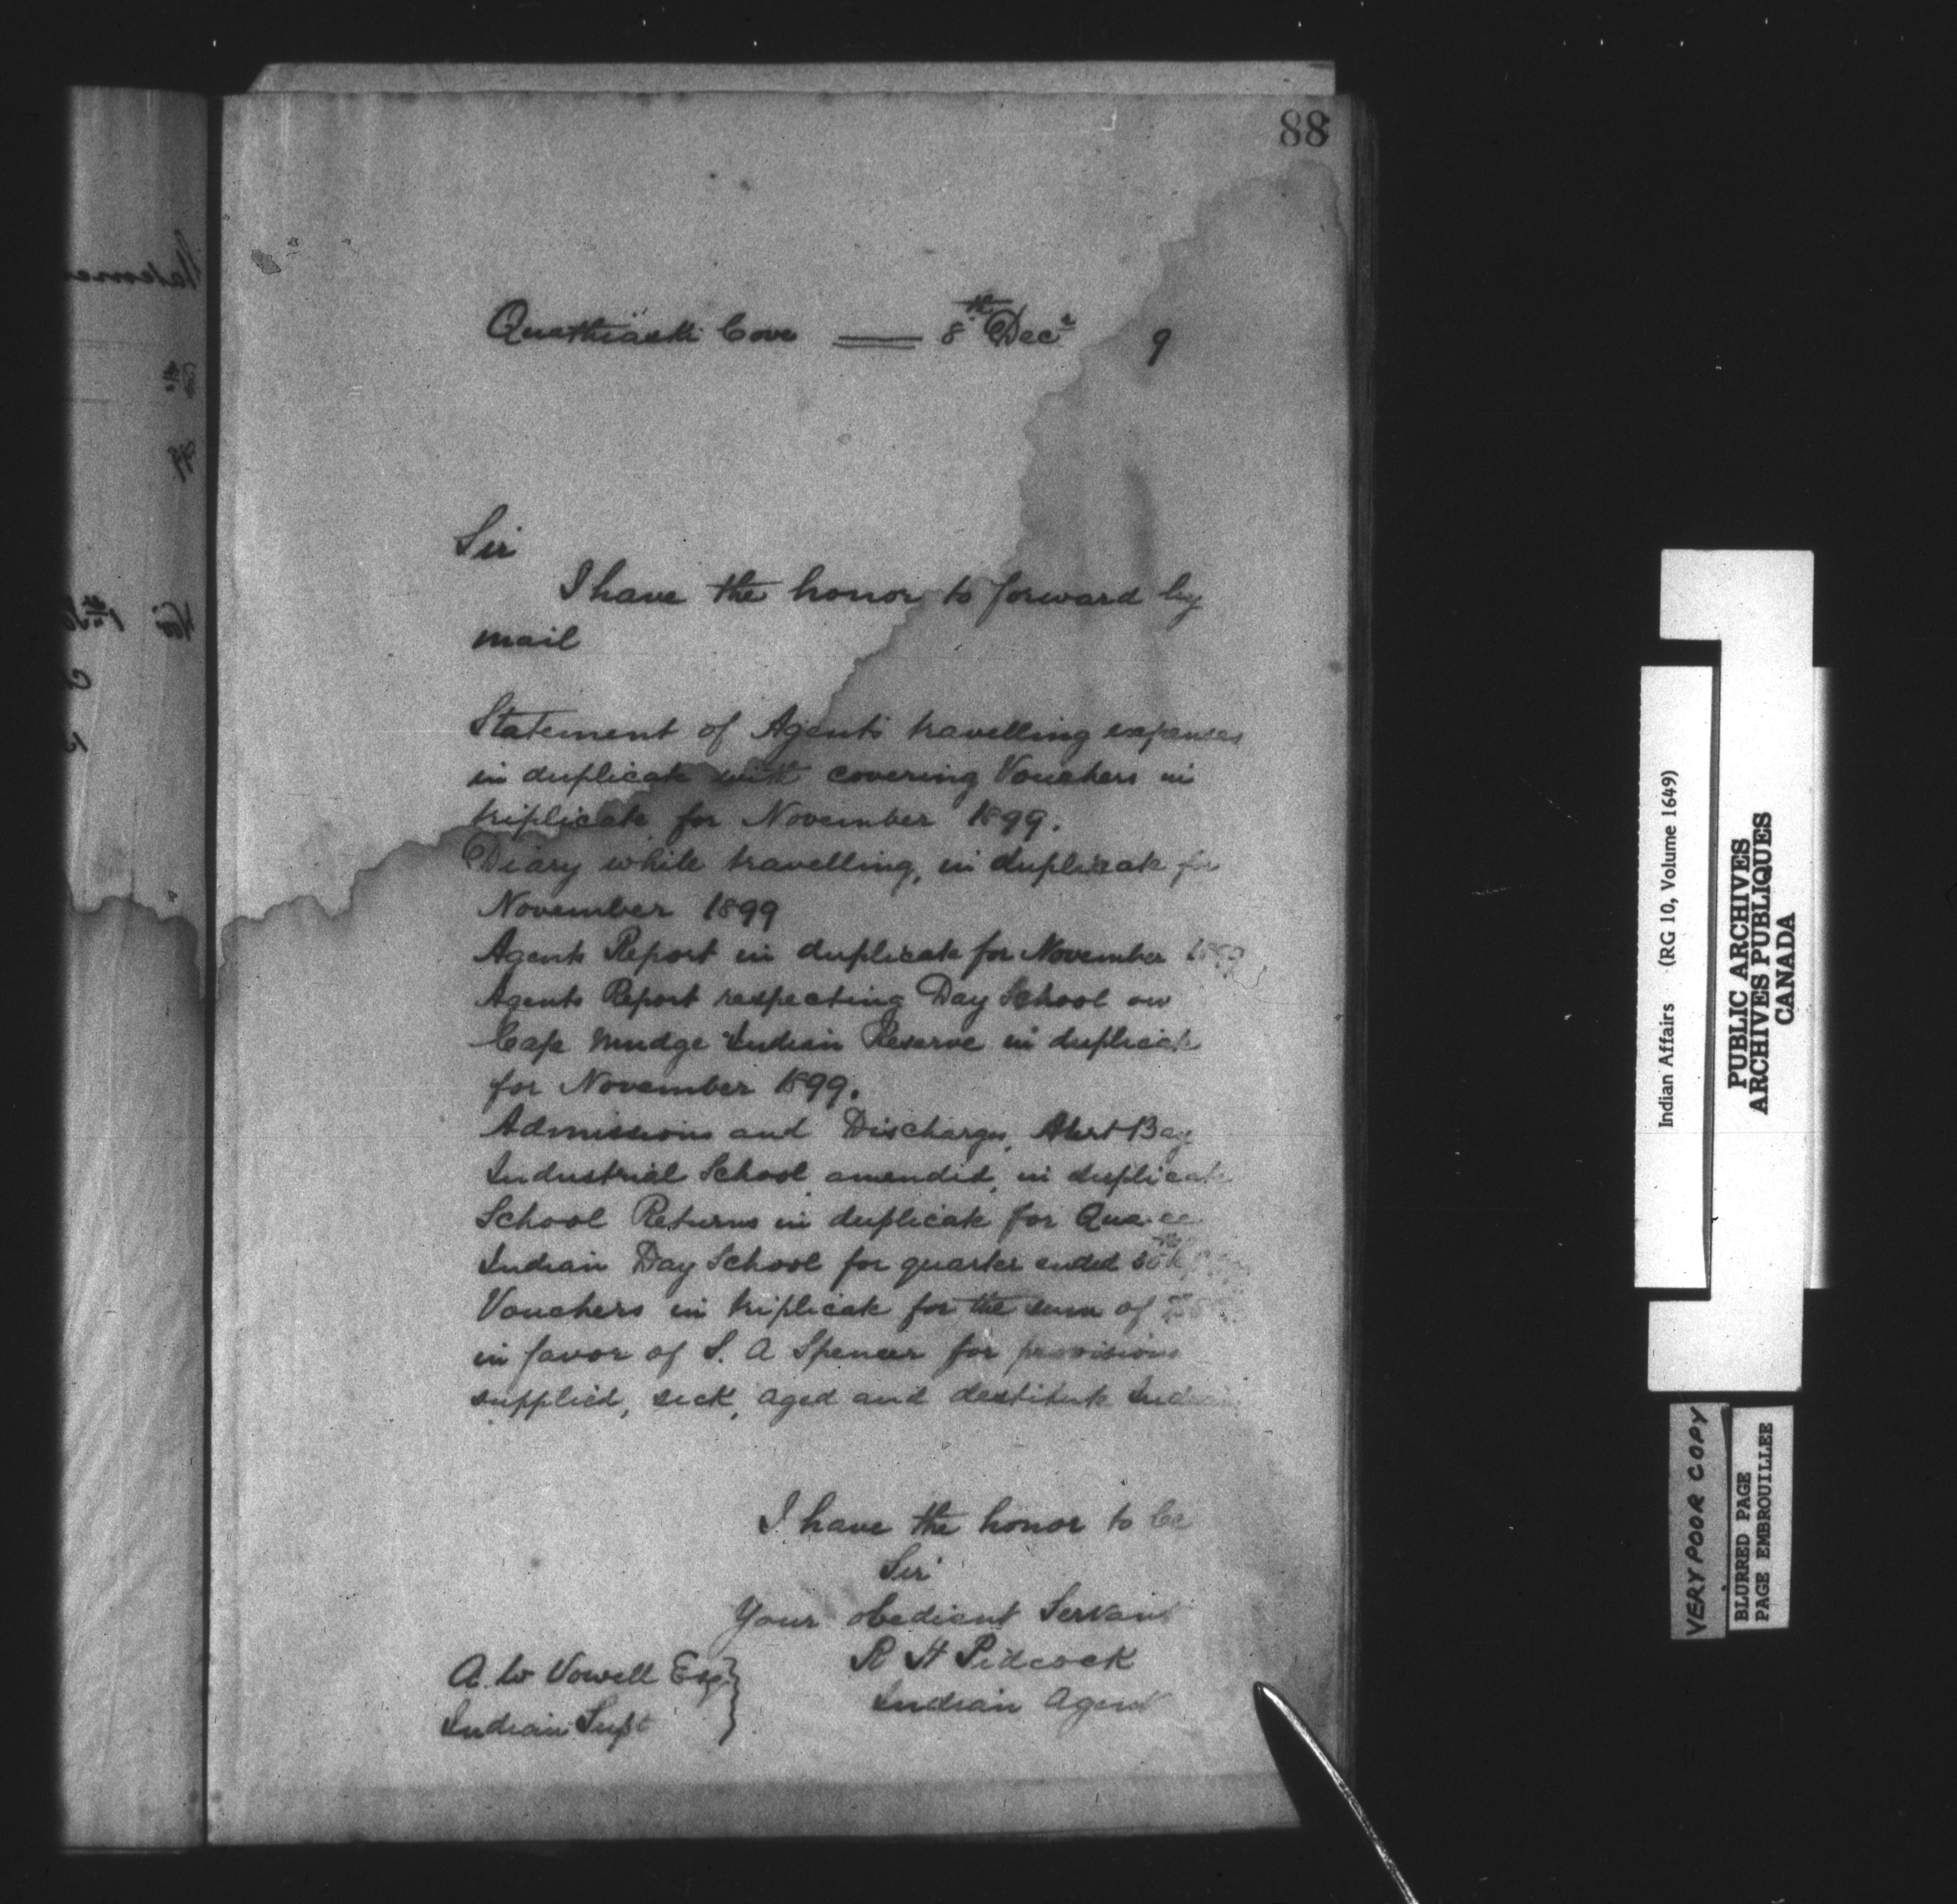 88
Quathiaski Cove 8th Decr 9
Sir
I have the honor to forward by
mail
Statement of Agents travelling expenses
in duplicate with covering Vouchers in
triplicate for November 1899.
Diary while travelling, in duplicate for
November 1899
Agents Report in duplicate for November
Agents Report respecting Day School on
Cape Mudge Indian Reserve in duplicate
for November 1899.
Admissions and Discharges, Alert Bay
Industrial School amended, in duplicate
School Returns in duplicate for
Indian Day School for quarter ended
Vouchers in triplicate for the sum of
in favor of S. A Spencer for provisions
supplied, sick, aged and destitute Indians
I have the honor to be
Sir
Your obedient Servant
R H Pidcock
Indian Agent
A. W Vowell Esq
Indian Supt
Indian Affairs (RG 10, Volume 1649)
PUBLIC ARCHIVES
ARCHIVES PUBLIQUES
CANADA
VERY POOR COPY
BLURRED PAGE
PAGE EMBROUILLEE